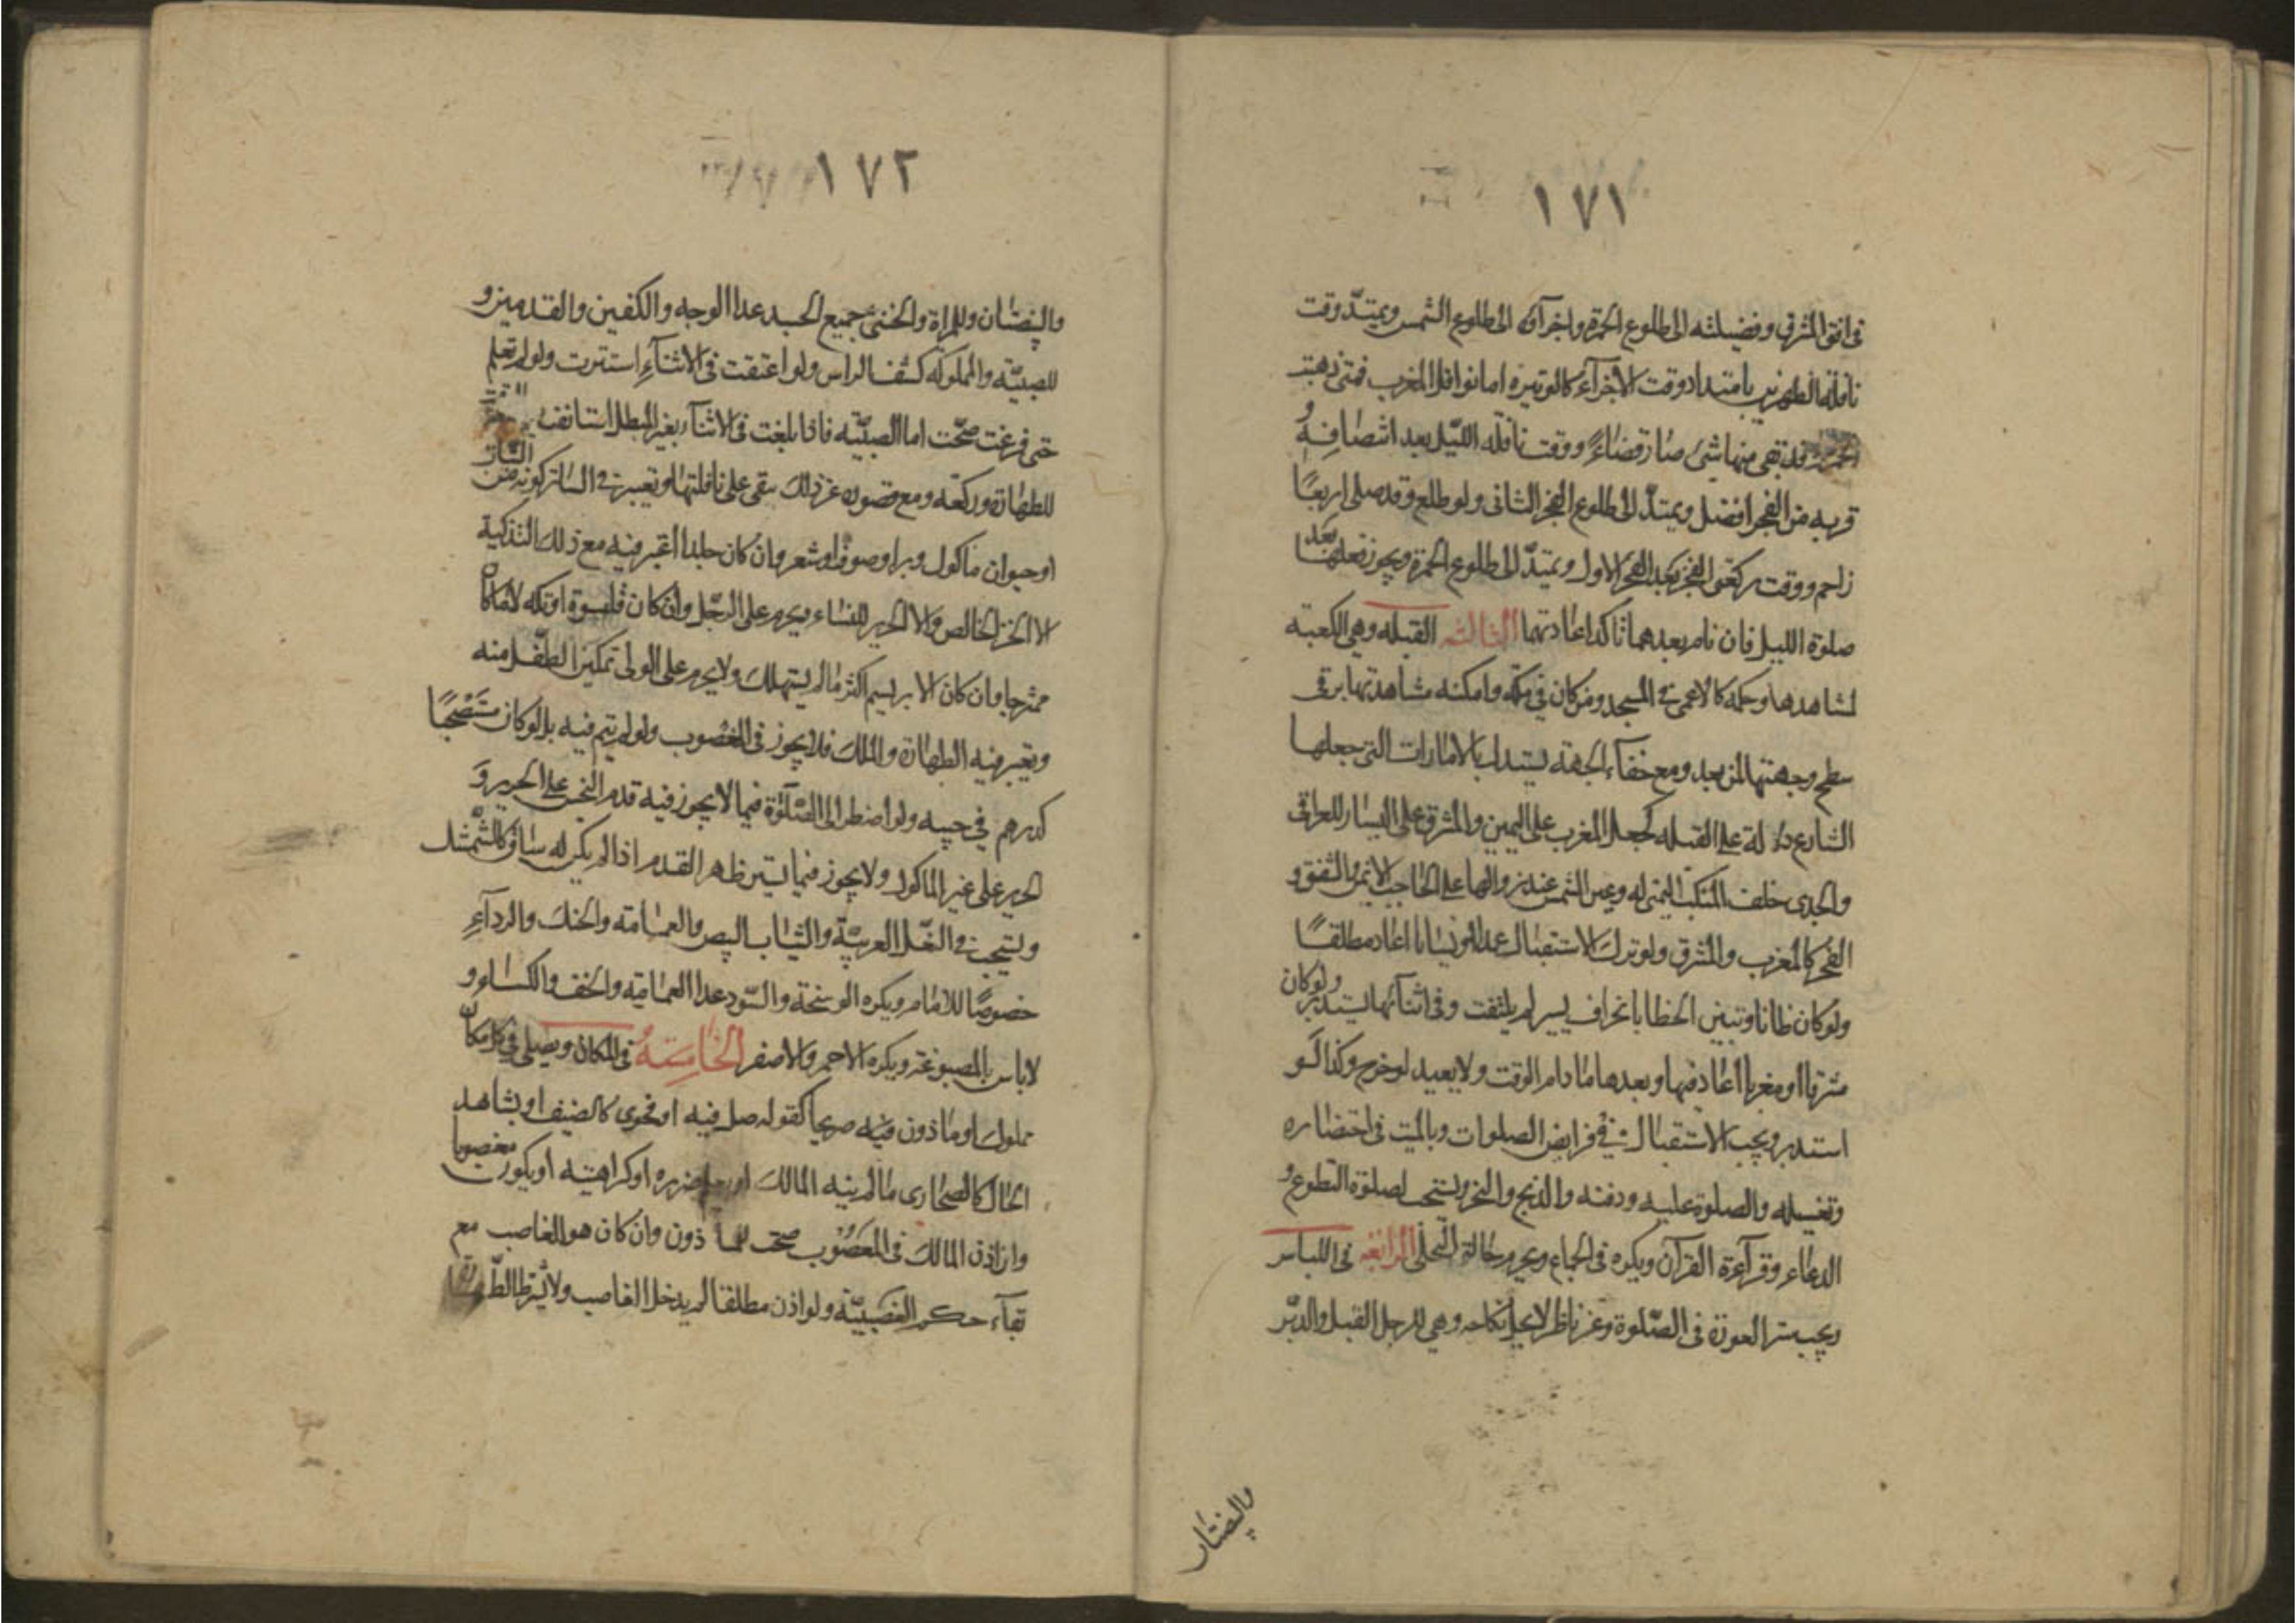 ١٧١
فى افق المشرق وفضيلته الى طلوع الحمرة واخر آؤه الى طلوع الشمس ويمتدّ وقت
نافلة الظهرين بامتداد وقت الاجزآء كالوتيره اما نوافل المغرب فمتى ذهبت
الحمره وقد بقى منها شئ صار قضاءً ووقت نافله الليّل بعد انتصافه و
قربه من الفجر افضل ويمتدّ الى طلوع الفجر الثانى ولو طلع وقد صلى اربعًا
زاحم ووقت ركعتى الفجر بعد الفجر الاول ويمتدّ الى طلوع الحمرة ويجوز فعلهما بعد
صلوة الليل فان نام بعدهما تاكد اعادتهما الثالثه القبله وهى الكعبه
لمشاهدها وحكمه كالاعمى فى المسجد ومن كان فى مكّه وامكنه مشاهدتها برقى
سطح وجهتها لمن بعد ومع خفآء الجهة يستدل بالامارات التى جعلها
الشارع دلالة على القبله كجعل المغرب على اليمين والمشرق على اليسار للعراقى
والجدى خلف المنكب اليمنى له وعين الشمس عند زوالها على الحاجب الايمن والشفق و
الفجر كالمغرب والمشرق ولو ترك الاستقبال عمدا او نسيانا اعاد مطلقًا
ولو كان ظانا وتبين الخطا بانحراف يسير لم يلتفت وفى اثنآئها يستدير ولو كان
مشرقا او مغربا اعاد فيها وبعدها مادام الوقت ولا يعيد لو خرج وكذا لو
استدبر ويجب الاستقبال فى فرايض الصلوات وبالميت فى احتضاره
وتغسيله والصلوة عليه ودفنه والذبح والنحر ويستحب لصلوة التطوع و
الدعاء وقرآءة القرآن ويكره فى الجماع ويحرم حالة التخلى الرابعه فى اللباس
ويجب ستر العورة فى الصّلوة وعن ناظر لا يحل نكاحه وهى للرجل القبل والدبر
والبيضتان
١٧٢
والبيضتان وللمراة والخنثى جميع الجسد عدا الوجه والكفين والقدمين و
للصبيّه والمملوكه كشف الراس ولو اعتقت فى الاثنآءِ استترت ولو لم تعلم
حتى فرغت صحّت اما الصبيّه فاذا بلغت فى الاثنآء بغير المبطل استانفت
للطهارة وركعه ومع قصوره عن ذلك تبقى على نافلتها ويعتبر فى الساتر كونه من النبات
او حيوان ماكول وبرا وصوفا وشعر وان كان جلدا اعتبر فيه مع ذلك التذكية
الا الخز الخالص والا الحرير للنساء ويحرم على الرجل وان كان قلنسوة او تكه لا ما كان
ممتزجا وان كان الابريسم اكثر مالم يستهلك ولا يحرم على الولى تمكين الطّفل منه
ويعتبر فيه الطهارة والملك فلا يجوز فى المغصوب ولو لم يتم فيه بل لو كان مستصحبًا
كدرهم فى جيبه ولو اضطر الى الصّلوة فيما لا يجوز فيه قدم النجس على الحرير و
الحرير على غير الماكول ولا يجوز فيما يستر ظهر القدم اذا لم يكن له ساق كالشّمشك
ويستحب فى النّعل العربيّة والثياب البيض والعمامة والحنك والردآءِ
خصوصًا للامام ويكره الوسخة والسّود عدا العمامة والخف والكساء و
لاباس بالمصبوغة ويكره الاحمر والاصفر الخامسهُ فى المكان ويصلى فى كل مكان
مملوك او ماذون فيه صريحا كقوله صل فيه او فحوى كالضيف او بشاهد
الحال كالصحارى مالم ينه المالك او ضرره او كراهيته او يكون مغصوبا
وان اذن المالك فى المغصوب صحت للماذون وان كان هو الغاصب مع
بقآء حكم الغصبيّة ولو اذن مطلقا لم يدخل الغاصب ولا يشترط الطّهارة